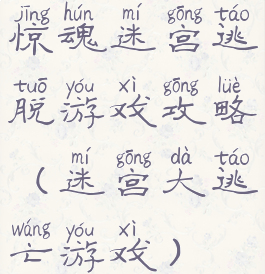 jīng hún mí gōng táo
惊魂迷宫逃
tuō yóu xì gōng lüè
脱游戏攻略
mí gōng dà táo
（迷宫大逃
wáng yóu xì
亡游戏）